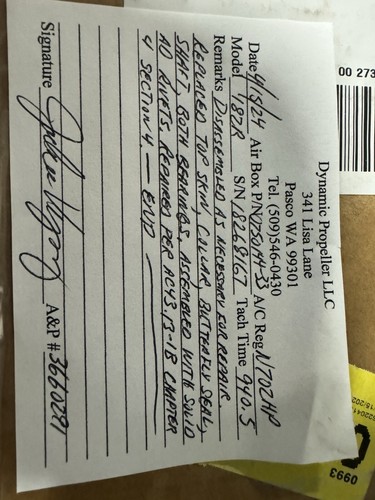 Dynamic Propeller LLC
341 Lisa Lane
Pasco WA 99301
Tel. (509)546-0430
Date 4/15/24 Air Box P/N 1250144-33 A/C Reg N7024P
Model 182R S/N 18268167 Tach Time 940.5
Remarks DISASSEMBLED AS NECESSARY FOR REPAIR.
REPLACED TOP SKIN, COLLAR, BUTTERFLY SEAL,
SHAFT BOTH BEARINGS, ASSEMBLED WITH SOLID
AD RIVETS, REQUIRED PER AC43.13-1B CHAPTER
4 SECTION 4. — END
Signature A&P # 3660291
00 273
0993